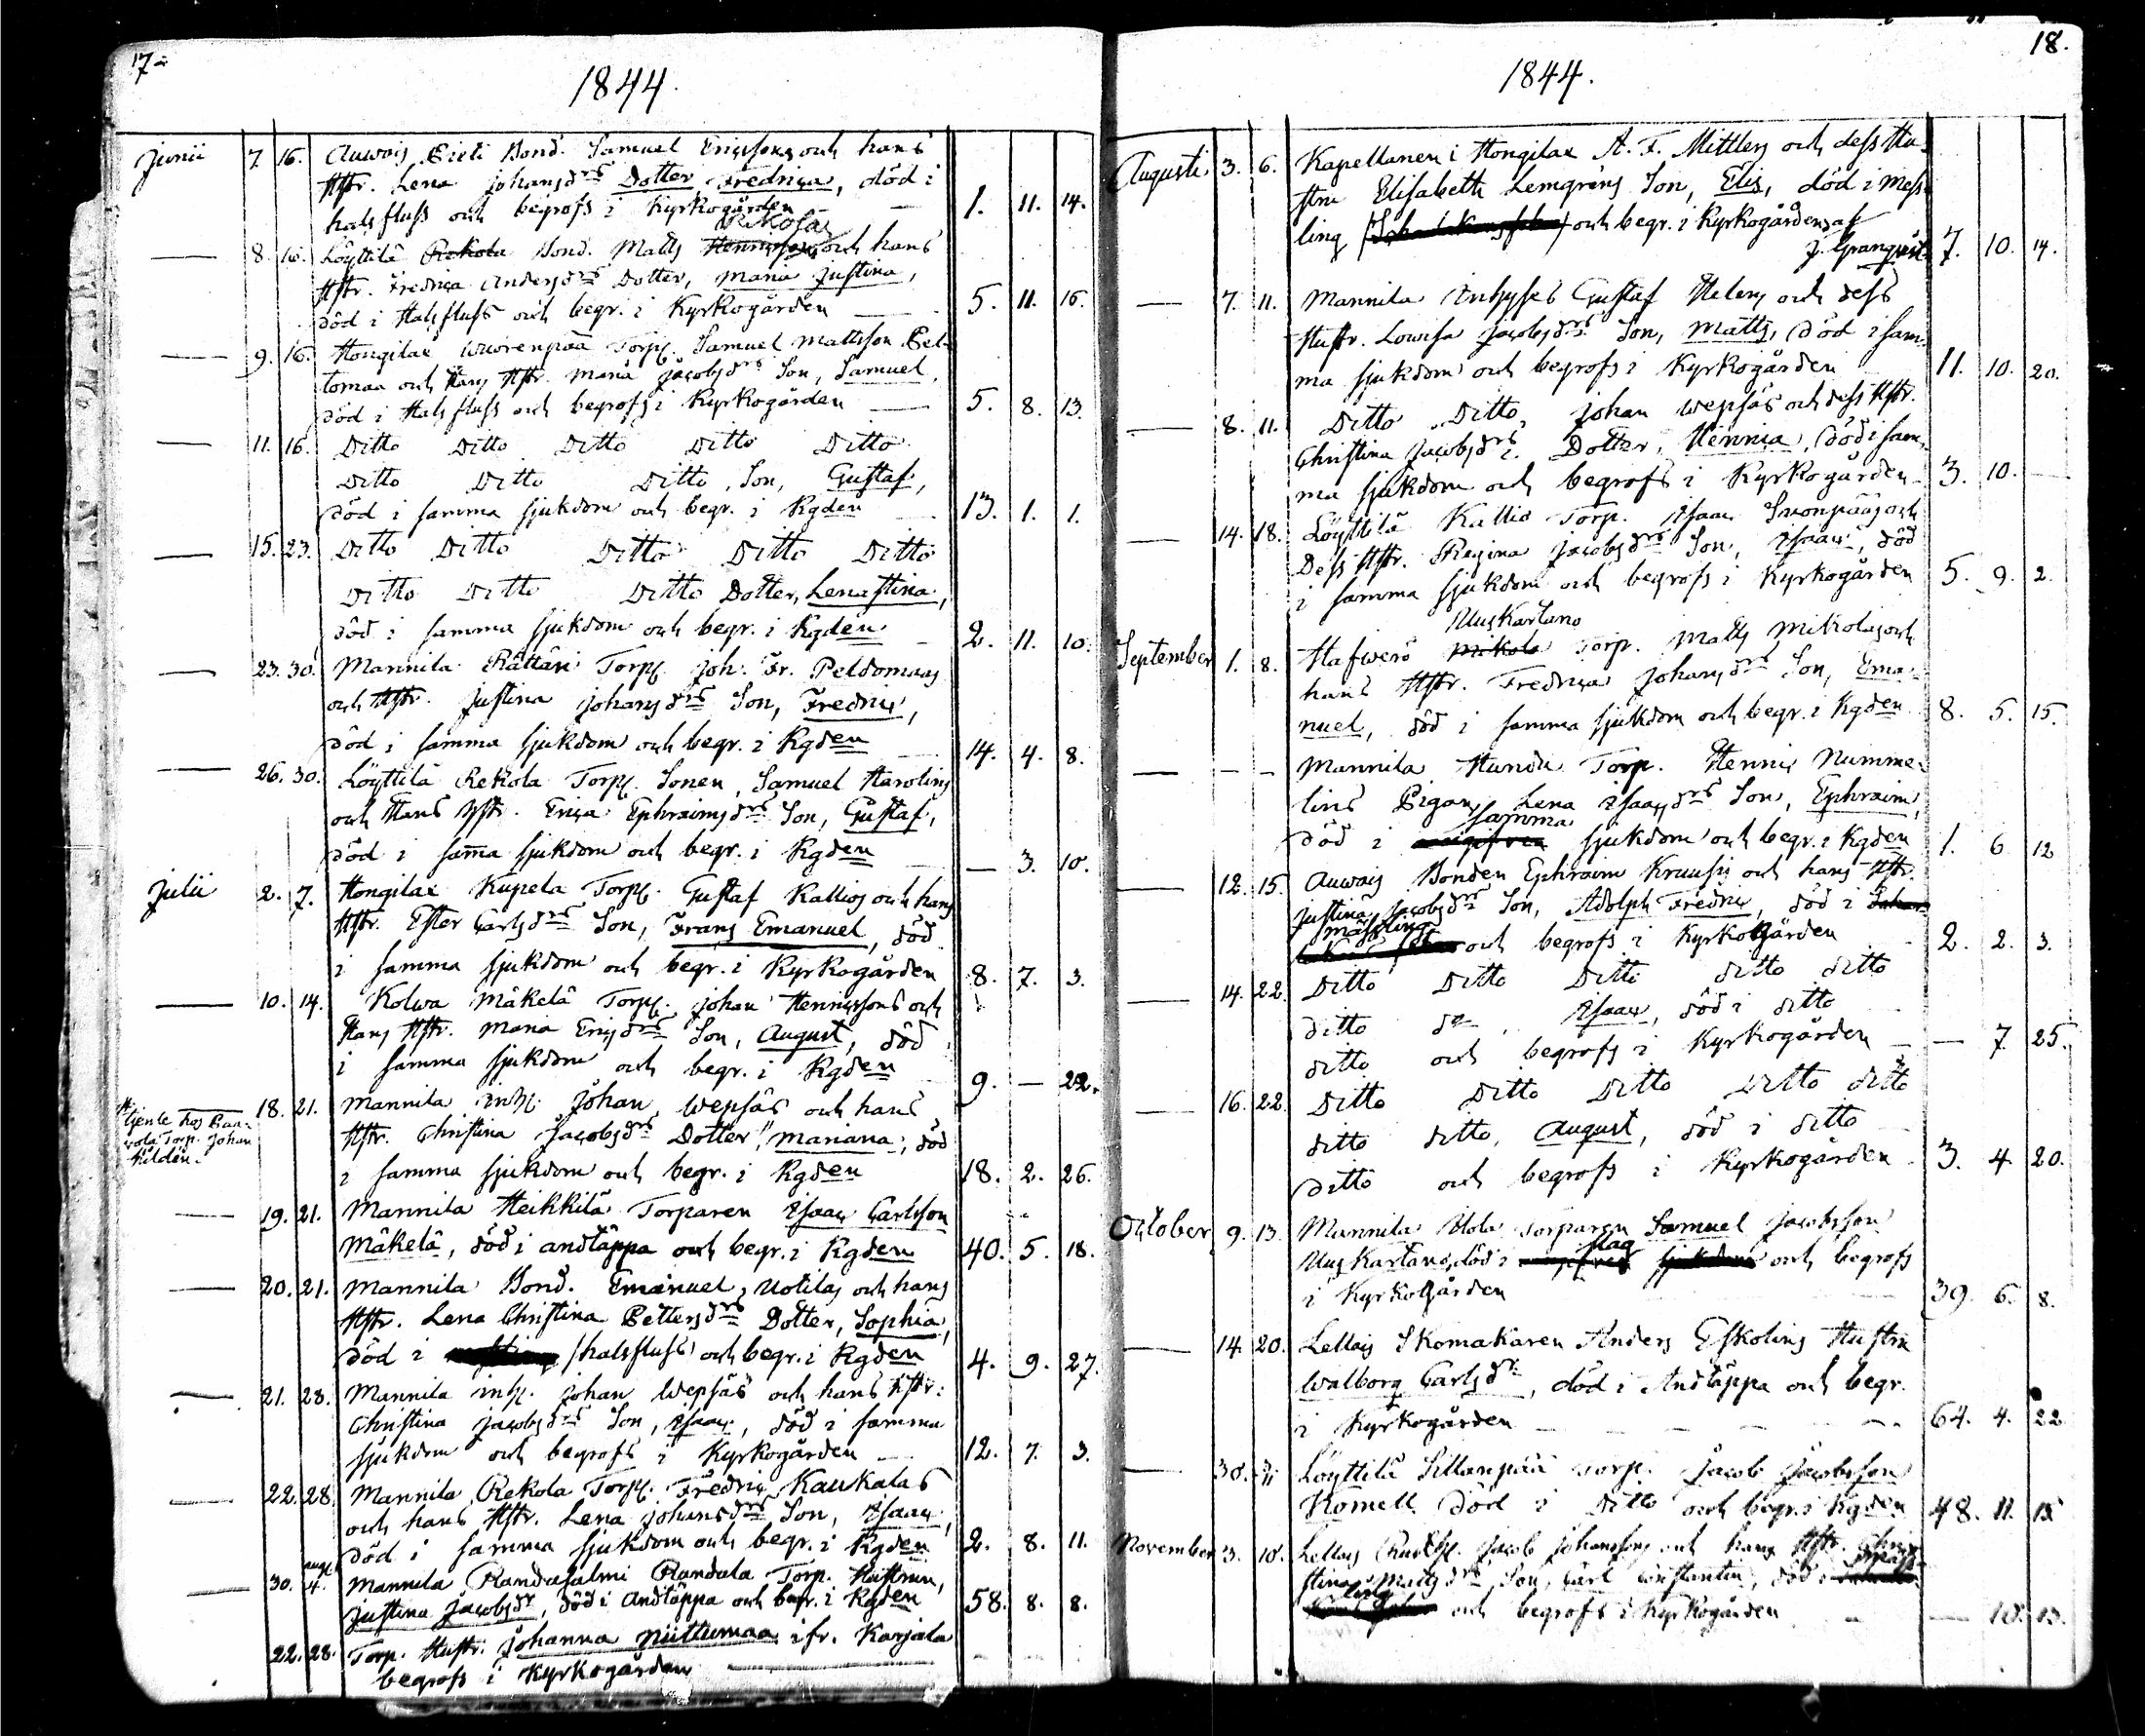 17
1844.
Junii 7. 16. Auwais Pieti Bond. Samuel Ericssons och hans
Hstr. Lena Johansdrs Dotter Fredrica, död i
halsfluss och begrofs i Kyrkogården 1. 11. 14.
Rekolas
8. 16. Löyttilä Rekola Bond. Matts och hans
Hstr. Fredrica Andersdrs Dotter, Maria Justina,
död i Halsfluss och begr. i Kyrkogården 5. 11. 16.
9. 16. Hongilax Wuorenpää Torp. Samuel Mattsson Pel-
tomaa och Hans Hstr. Maria Jacobsdrs Son, Samuel,
död i Halsfluss och begrofs i Kyrkogården 5. 8. 13.
11. 16. Ditto Ditto Ditto Ditto Ditto
Ditto Ditto Ditto, Son, Gustaf,
död i samma sjukdom och begr. i Kgden 13. 1. 1.
15. 23. Ditto Ditto Ditto Ditto Ditto
Ditto Ditto Ditto Dotter, Lenastina,
död i samma sjukdom och begr. i Kgden 2. 11. 10.
23. 30. Mannila Rättäri Torp. Joh. Fr. Peldomaas
och Hstr. Justina Johansdrs Son, Fredric,
död i samma sjukdom och begr. i Kgden 14. 4. 8.
26. 30. Löyttilä Rekola Torp. Sonen, Samuel Harolins
och Hans Hstr. Erica Ephraimsdrs Son, Gustaf,
död i sama sjukdom och begr. i Kgden — 3. 10.
Julii 2. 7. Hongilax Kupela Torp. Gustaf Kallios och hans
Hstr. Ester Carlsdrs Son, Frans Emanuel, död
i samma sjukdom och begr. i Kyrkogården 8. 7. 3.
10. 14. Kolwa Mäkelä Torp. Johan Henricssons och
Hans Hstr. Maria Ericsdrs Son, August, död
i samma sjukdom och begr. i Kgden 9. — 22.
tjente hos
Torp. Johan
18. 21. Mannila inh. Johan Wepsäs och hans
Hstr. Christina Jacobsdrs Dotter, Mariana, död
i samma sjukdom och begr. i Kgden 18. 2. 26.
19. 21. Mannila Heikkilä Torparen Isaac Carlsson
Mäkelä, död i andtäppa och begr. i Kgden 40. 5. 18.
20. 21. Mannila Bond. Emanuel Uotilas och hans
Hstr. Lena Christina Pettersdrs Dotter, Sophia,
död i halsfluss och begr. i Kgden 4. 9. 27.
21. 28. Mannila inh. Johan Wepsäs och hans Hstr.
Christina Jacobsdrs Son, Isaac, död i samma
sjukdom och begrofs i Kyrkogården 12. 7. 3.
22. 28. Mannila Rekola Torp. Fredric Kaukalas
och hans Hstr. Lena Johansdrs Son, Isaac,
död i samma sjukdom och begr. i Kgden 2. 8. 11.
aug.
30. 4. Mannila Randasalmi Randala Torp. Hustrun,
Justina Jacobsdr, död i Andtäppa och begr. i Kgden 58. 8. 8.
22. 28. Torp. Hustr. Johanna Niittumaa ifr. Karjala
begrofs i Kyrkogården
18.
1844.
Augusti 3. 6. Kapellanen i Hongilax A. F. Mittlers och dess Hu-
stru Elisabeth Lemgréns Son, Elis, död i Mess-
ling och begr. i Kyrkogården af
J. Granqvist 7. 10. 14.
7. 11. Mannila Inhyses Gustaf Helens och dess
Hustr. Lowisa Jacobsdrs Son, Matts, död i sam-
ma sjukdom och begrofs i Kyrkogården 11. 10. 20.
8. 11. Ditto Ditto Johan Wepsäs och dess Hstr.
Christina Jacobsdrs Dotter, Henrica, död i sam-
ma sjukdom och begrofs i Kyrkogården 3. 10. —
14. 18. Löyttilä Kallio Torp. Isaac Suonpääs och
Dess Hstr. Regina Jacobsdrs Son, Isaac, död
i samma sjukdom och begrofs i Kyrkogården 5. 9. 2.
Uuskartano
September 1. 8. Hafwerö Mikola Torp. Matts Mikolas och
hans Hstr. Fredrica Johansdrs Son, Ema-
nuel, död i samma sjukdom och begr. i Kgden 8. 5. 15.
— — Mannila Hundu Torp. Henric Numme-
lins Pigans Lena Isaacsdrs Son, Ephraim,
samma
död i sjukdom och begr. i Kgden 1. 6. 12
12. 15. Auwais Bonden Ephraim Kruusis och hans Hstr.
Justina Jacobsdrs Son, Adolph Fredric, död i
mässling
och begrofs i Kyrkogården 2. 2. 3.
14. 22. Ditto Ditto Ditto ditto ditto
ditto do, Isaac, död i ditto
ditto och begrofs i Kyrkogården — 7. 25.
16. 22. Ditto Ditto Ditto Ditto ditto
ditto ditto, August, död i ditto
ditto och begrofs i Kyrkogården 3. 4. 20.
October 9. 13. Mannila Uola Torparen Samuel Jacobsson
slag
Uuskartano, död i sjukdom och begrofs
i Kyrkogården 39. 6. 8.
14. 20. Lellais Skomakaren Anders Eskolins Hustru
Walborg Carlsdr, död i Andtäppa och begr.
i Kyrkogården 64. 4. 22
30. Löyttilä Sillanpää Torp. Jacob Jacobsson
Komell död i Ditto och begr. i Kgden 48. 11. 15
November 3. 10. Lellais Jacob Johanssons och hans Hstr. Chri-
mäss-
stina Mattsdrs Son, Carl Constantin, död i
ling
och begrofs i Kyrkogården — 10. 13.